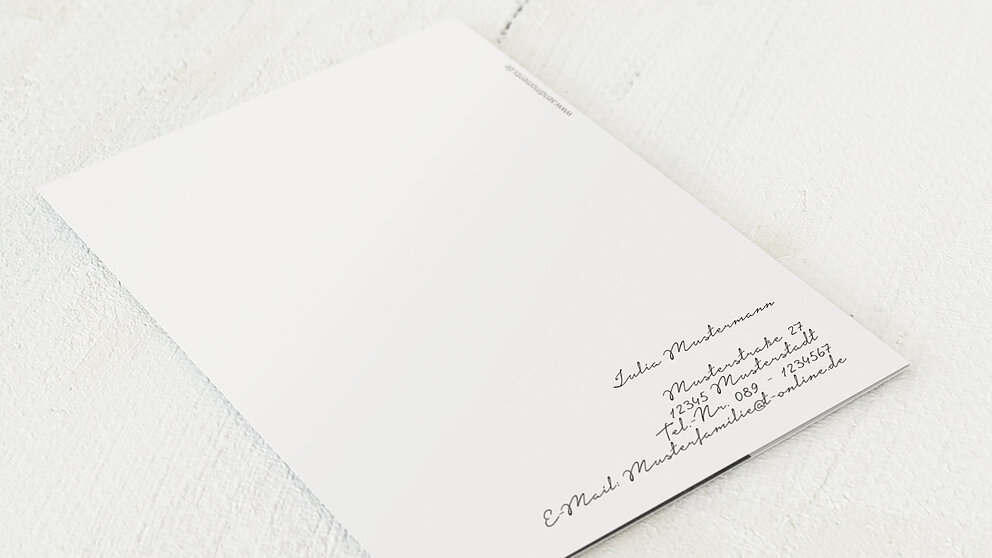 www.sendmoments.de
Julia Mustermann
Musterstraße 27
12345 Musterstadt
Tel.-Nr. 089 - 1234567
E-Mail: Musterfamilie@t-online.de